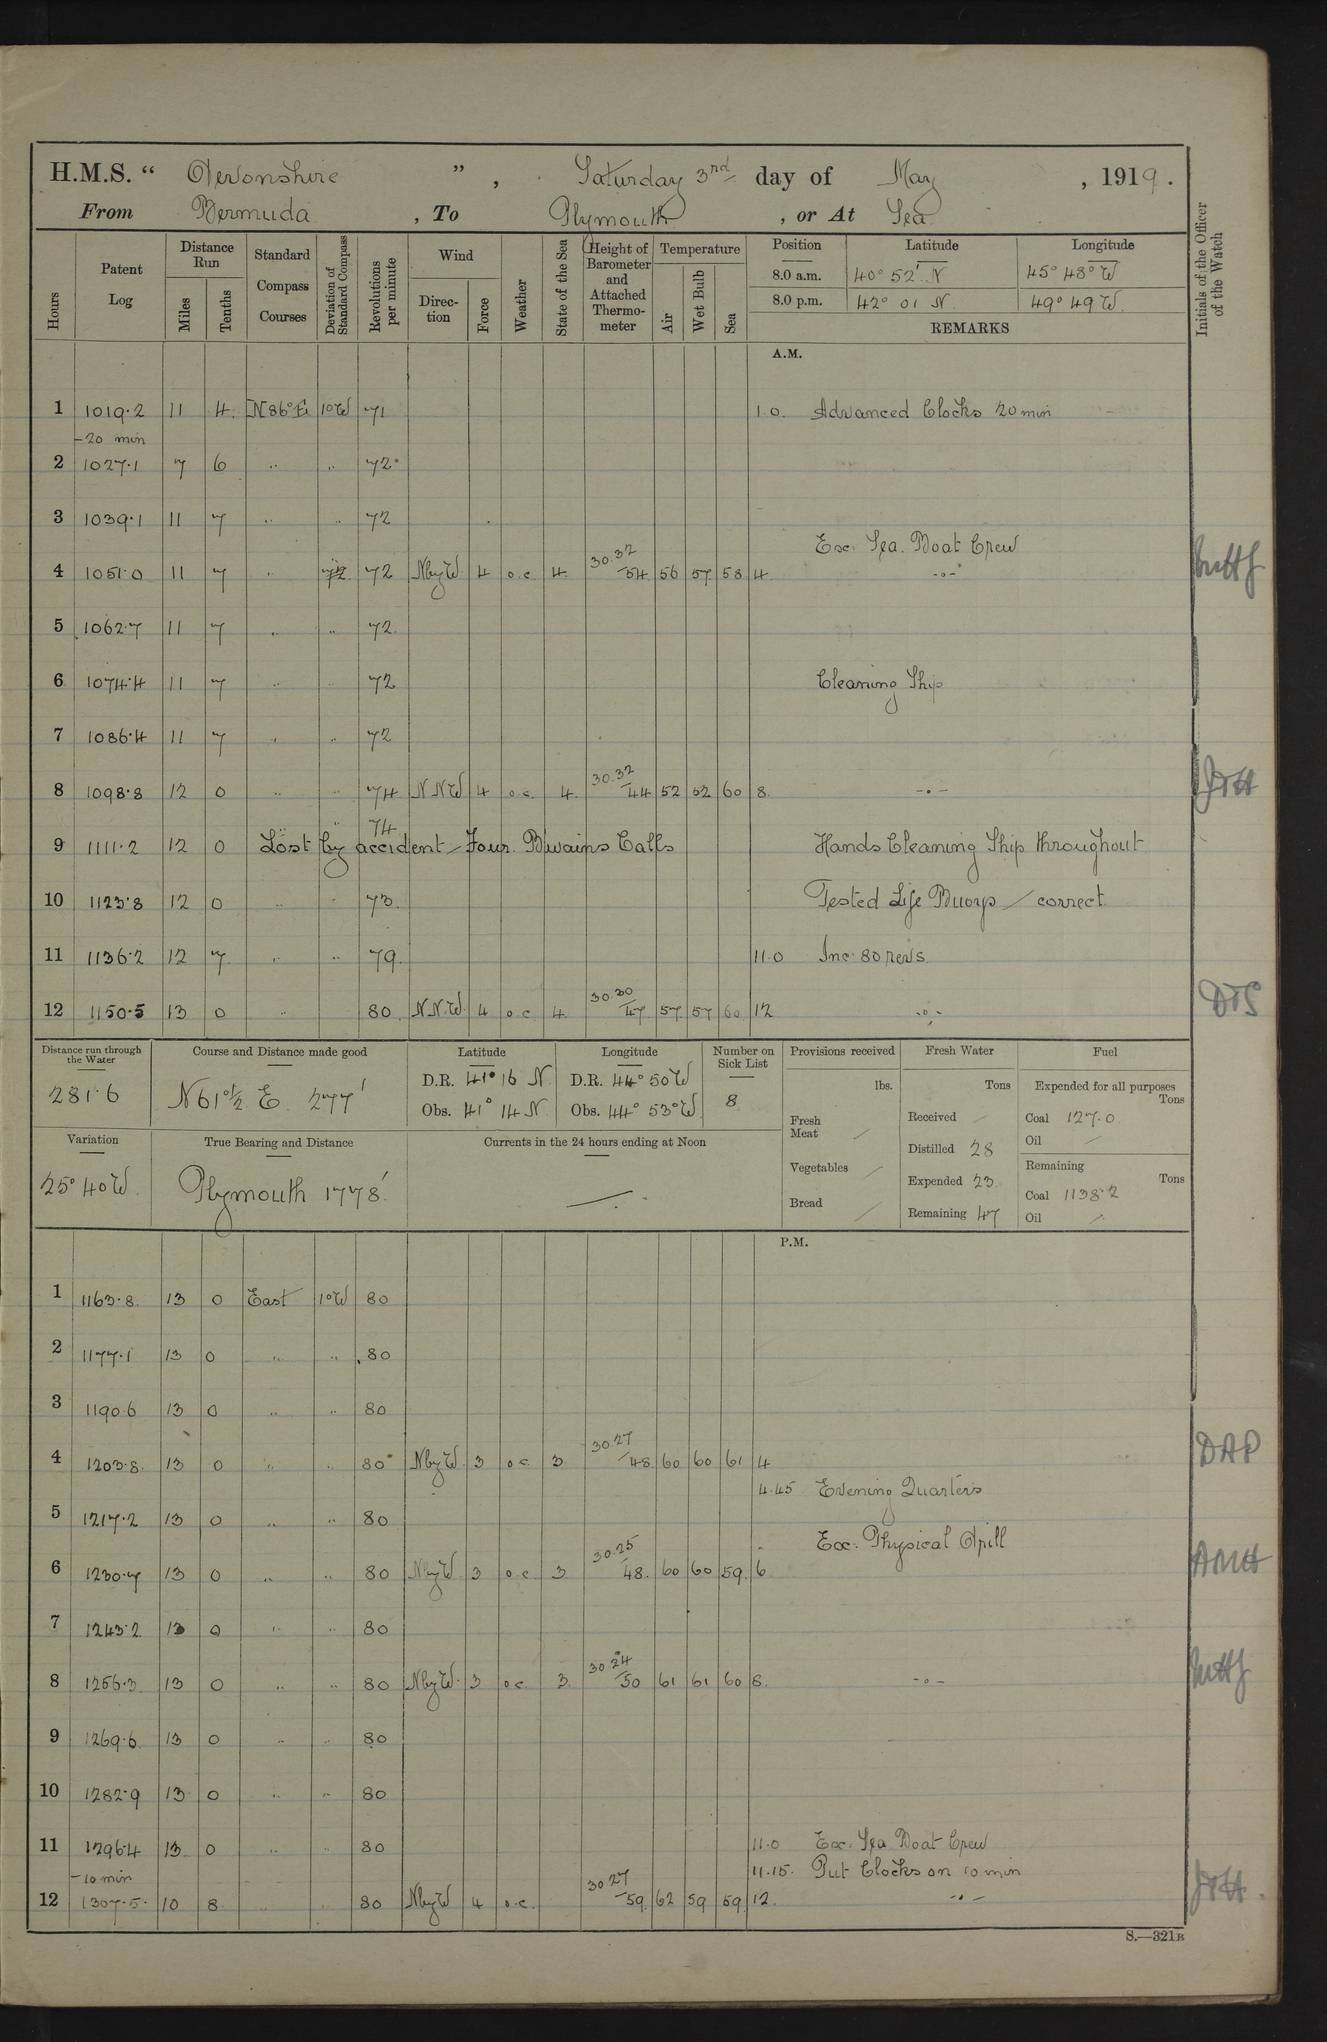 H.M.S. “ Devonshire ” , Saturday 3rd day of May , 1919 .
From Bermuda , To Plymouth , or At Sea
Hours Patent Log Distance Run Miles Tenths Standard Compass Courses Deviation of Standard Compass Revolutions per minute Wind Direc-tion Force Weather State of the Sea Height of Barometer and Attached Thermo-meter Temperature Air Wet Bulb Sea Position Latitude Longitude Initials of the Officer of the Watch
8.0 a.m. 40° 52' N 45° 48° W
8.0 p.m. 42° 01 N 49° 49 W
REMARKS
A.M.
1 1019·2 11 4 N86°E 1°W 71 1.0. Advanced Clocks 20 min
-20 min
2 1027·1 7 6 .. .. 72
3 1039·1 11 7 .. .. 72
Exc. Sea Boat Crew
4 1051·0 11 7 .. 72 NbyW 4 o.c. 4 30.32/54 56 57 58 4 -o-
5 1062·7 11 7 .. .. 72
6 1074·4 11 7 .. .. 72 Cleaning Ship
7 1086·4 11 7 .. .. 72
8 1098·8 12 0 .. .. 74 NNW 4 o.c. 4 30.32/44 52 52 60 8 -o- JTH
9 1111·2 12 0 .. .. 74 Lost by accident - Four B'wains Calls Hands Cleaning Ship throughout
10 1123·8 12 0 .. .. 73 Tested Life Buoys / correct
11 1136·2 12 7 .. .. 79 11.0 Inc. 80 revs
12 1150·5 13 0 .. 80 NNW 4 o.c 4 30.30/47 57 57 60 12 -o- DTS
Distance run through the Water Course and Distance made good Latitude Longitude Number on Sick List Provisions received Fresh Water Fuel
281·6 N61°½ E 277' D.R. 41° 16 N D.R. 44° 50 W 8 lbs. Tons Expended for all purposes Tons
Obs. 41° 14 N Obs. 44° 53° W Fresh Meat / Received / Coal 127.0
Distilled 28 Oil /
Variation True Bearing and Distance Currents in the 24 hours ending at Noon
25° 40 W Plymouth 1778' Vegetables / Expended 23 Remaining Tons
Coal 1138·2
Bread / Remaining 47 Oil /
P.M.
1 1163·8 13 0 East 1°W 80
2 1177·1 13 0 .. .. 80
3 1190·6 13 0 .. .. 80
4 1203·8 13 0 .. .. 80 NbyW 3 o.c 3 30.27/48 60 60 61 4 DAP
4.45 Evening Quarters
5 1217·2 13 0 .. .. 80
Exc. Physical Drill
6 1230·7 13 0 .. .. 80 NbyW 3 o.c 3 30.25/48 60 60 59 6 AMH
7 1243·2 13 0 .. .. 80
8 1256·3 13 0 .. .. 80 NbyW 3 o.c. 3 30.24/50 61 61 60 8 -o-
9 1269·6 13 0 .. .. 80
10 1282·9 13 0 .. .. 80
11 1296·4 13 0 .. .. 80 11.0 Exc. Sea Boat Crew
-10 min 11.15. Put Clocks on 10 min
12 1307·5 10 8 .. 80 NbyW 4 o.c. 30.27/59 62 59 59 12 -o- JTH
S.—321B